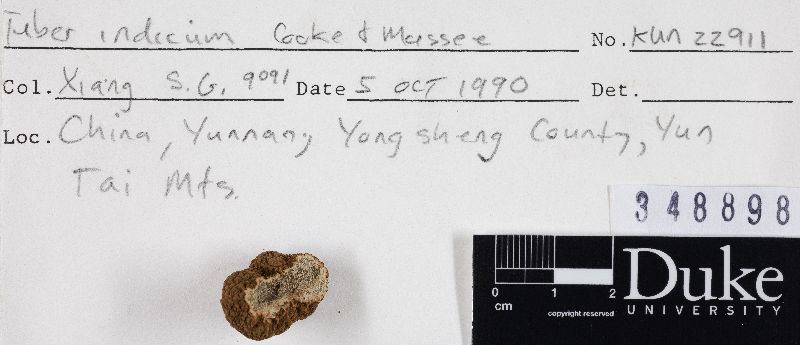 Tuber indicum Cooke & Massee No. KUN 22911
Col. Xiang S.G. 9091 Date 5 OCT 1990 Det.
Loc. China, Yunnan, Yongsheng County, Yun
Tai Mts.
348898
0 1 2
cm
copyright reserved
Duke
UNIVERSITY